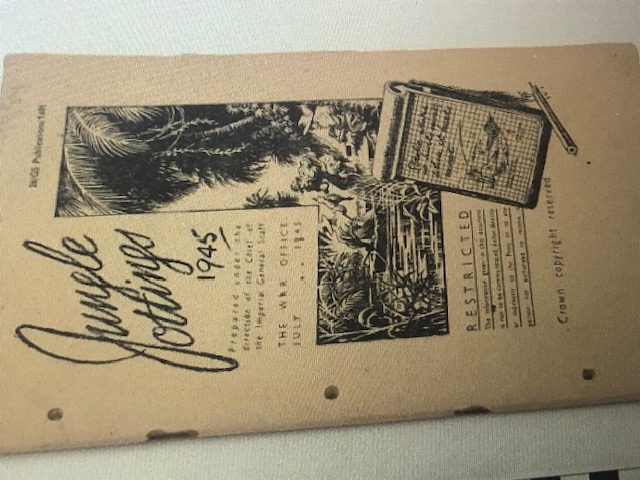 26/GS Publications/1401
Jungle
Jottings
1945
Prepared under the
direction of the Chief of
the Imperial General Staff
THE WAR OFFICE
JULY 1945
RESTRICTED
The information given in this document
is not to be communicated, either directly
or indirectly, to the Press or to any
person not authorised to receive it.
Crown copyright reserved